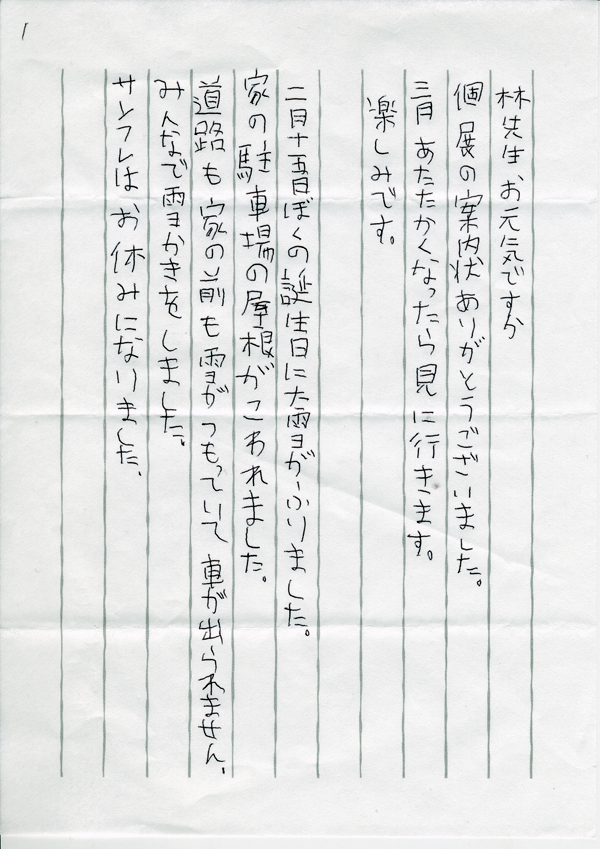 1
林先生 お元気ですか
個展の案内状ありがとうございました。
三月 あたたかくなったら見に行きます。
楽しみです。
二月十五日ぼくの誕生日に大雪がふりました。
家の駐車場の屋根がこわれました。
道路も家の前も雪がつもっていて 車が出られません。
みんなで雪かきをしました。
サンフレはお休みになりました。